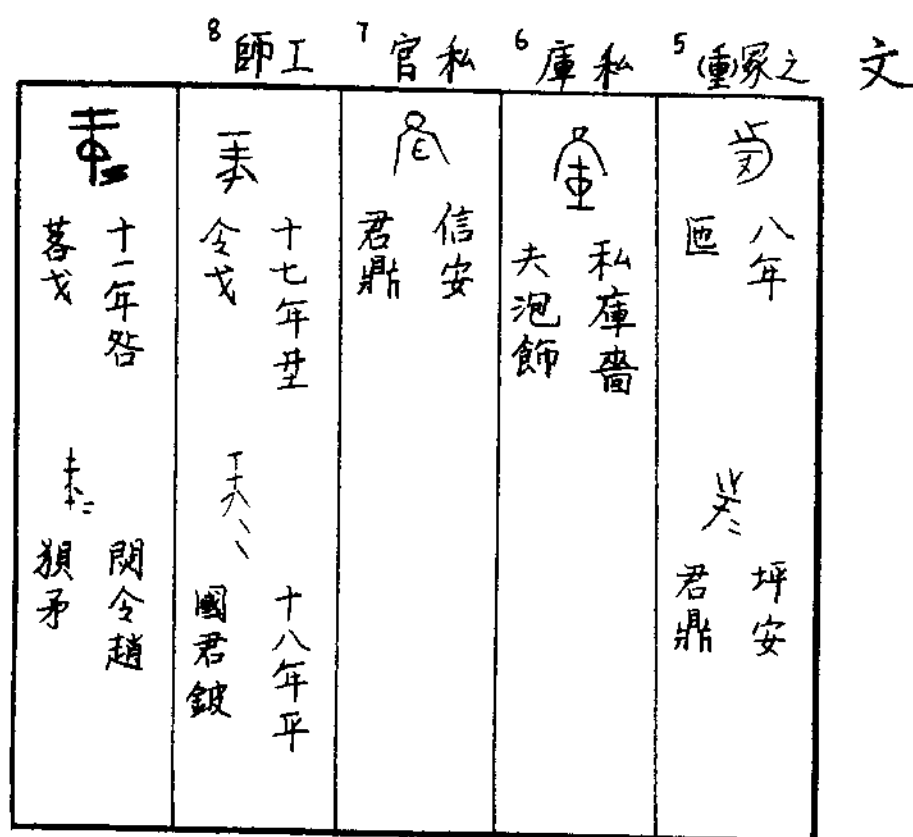 文
5 之冢(重)
八年
匜
坪安
君鼎
6 私庫
私庫嗇
夫泡飾
7 私官
信安
君鼎
8 工師
十七年坓
令戈
十八年平
國君鈹
十一年咎
戈
閔令趙
矛